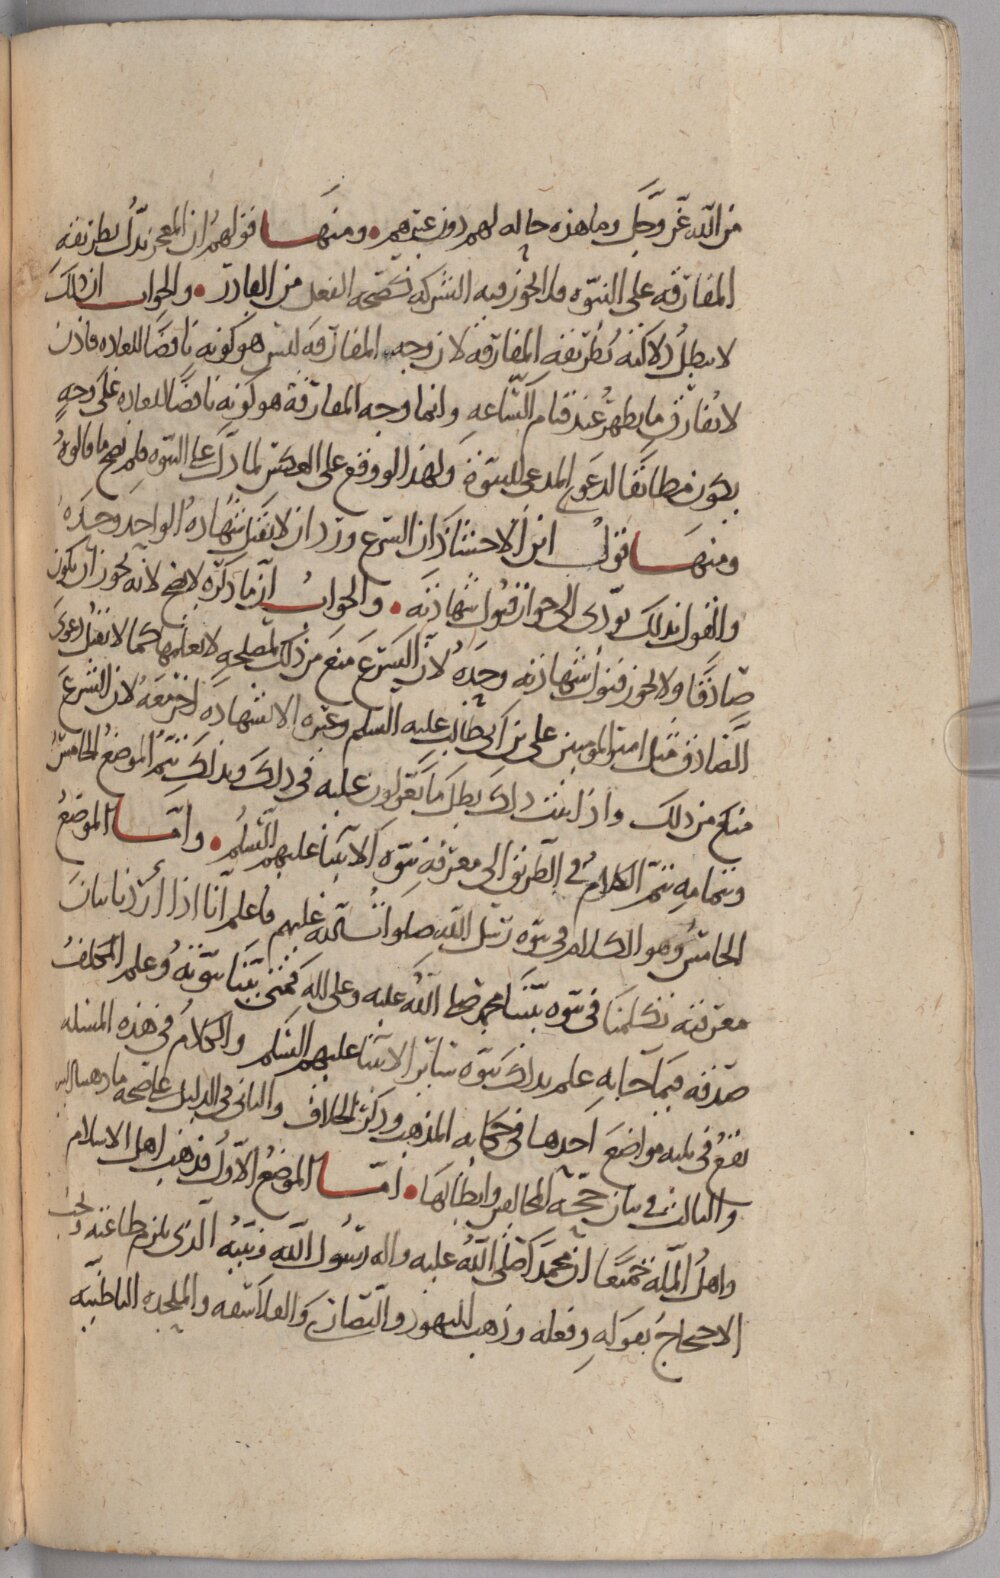 من الله عز وجل وما هذه حاله لهم دون غيرهم ومنها قولهم ان المعجز يدل بطريقه
المفارقه على النبوه فلا يجوز فيه الشركه كصحه الفعل من القادر والجواب ان ذلك
لا يبطل دلالته بطريقه المفارقه لان وجه المفارقه ليس هو كونه ناقضا للعاده فاذن
لا يفارق ما يظهر عند قيام الساعه وانما وجه المفارقة هو كونه ناقضا للعاده على وجه
يكون مطابقا لدعوى المدعي للنبوة ولهذا لو وقع على العكس لما دل على النبوه فلم يصح ما قالوه
ومنها قول ابن الاخشاذ ان الشرع ورد ان لا تقبل شهادة الواحد وحده
والقول بذلك يودى الى جواز قبول شهادته والجواب ان ما ذكره لا يصح لانه يجوز ان يكون
صادقا ولا يجوز قبول شهادته وحده لان الشرع منع من ذلك لمصلحه لا نعلمها كما لا تقبل دعوى
الصادق مثل امير المومنين على بن ابى طالب عليه السلم وغيره الا بشهادة اخر معه لان الشرع
منع من ذلك واذا ثبت ذلك بطل ما يعولون عليه في ذلك وبذلك يتم الموضع الخامس
وبتمامه يتم الكلام في الطريق الى معرفة نبوه الانبيا عليهم السلم واما الموضع
الخامس وهو الكلام فى نبوه رسل الله صلوات الله عليهم فاعلم انا اذا اردنا بيان
معرفته تكلمنا فى نبوه نبينا محمد صلى الله عليه وعلى اله فمتى بينا نبوته وعلم المكلف
صدقه فيما جا به علم بذلك نبوه سائر الانبيا عليهم السلم والكلام في هذه المسله
يقع في ثلثه مواضع احدها فى حكايه المذهب وذكر الخلاف والثانى فى الدليل على صحه ما ذهبنا اليه
والثالث في بيان حجة المخالفين وابطالها اما الموضع الاول فذهب اهل الاسلام
واهل المله جميعا ان محمدا صلى الله عليه واله رسول الله ونبيه الذى يلزم طاعته ويجب
الاحتجاج بقوله وفعله وذهب اليهود والنصارى والفلاسفه والملحده الباطنيه